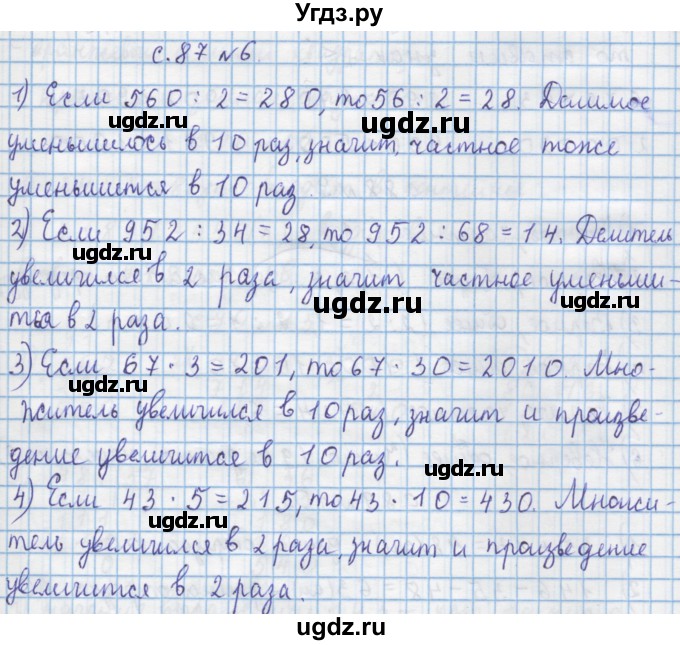 Угдз.ру
с.87 №6
1) Если 560 : 2 = 280, то 56 : 2 = 28. Делимое
ugdz.ru ugdz.ru
уменьшилось в 10 раз, значит, частное тоже
уменьшится в 10 раз.
ugdz.ru
2) Если 952 : 34 = 28, то 952 : 68 = 14. Делитель
ugdz.ru
увеличился в 2 раза, значит частное уменьши-
ugdz.ru
тся в 2 раза.
3) Если 67 · 3 = 201, то 67 · 30 = 2010. Мно-
ugdz.ru
житель увеличился в 10 раз, значит и произве-
ugdz.ru
дение увеличится в 10 раз.
ugdz.ru
4) Если 43 · 5 = 215, то 43 · 10 = 430. Множи-
ugdz.ru
тель увеличился в 2 раза, значит и произведение
ugdz.ru
увеличится в 2 раза.
ugdz.ru